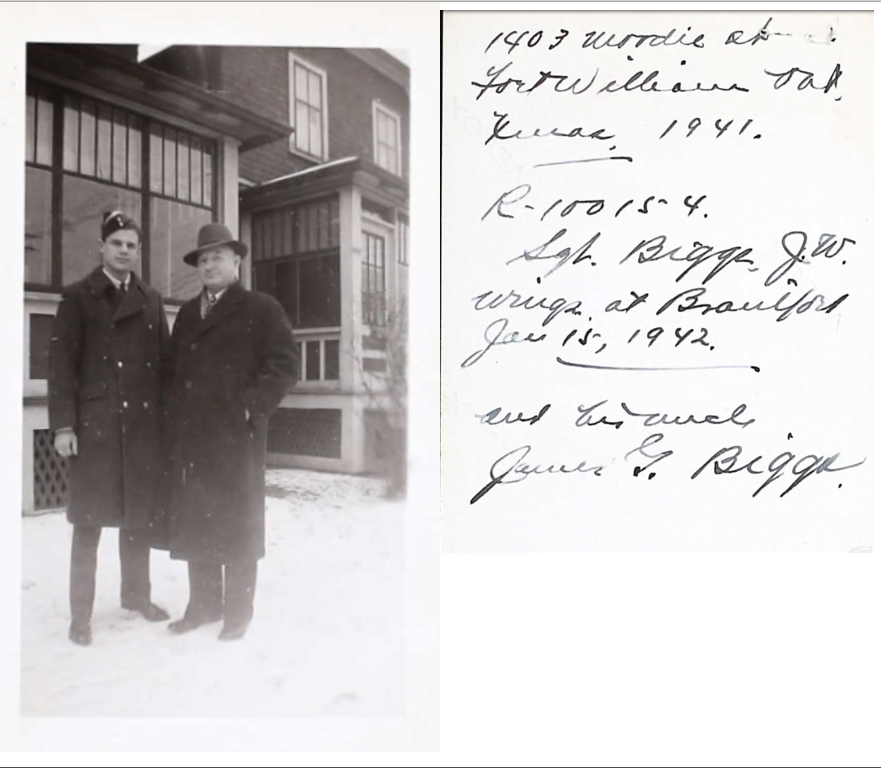 1403 Moodie St
Fort William Ont.
Xmas, 1941.
R-100154.
Sgt. Biggs, J.W.
wings at Brantford
Jan 15, 1942.
and his uncle
James G. Biggs.